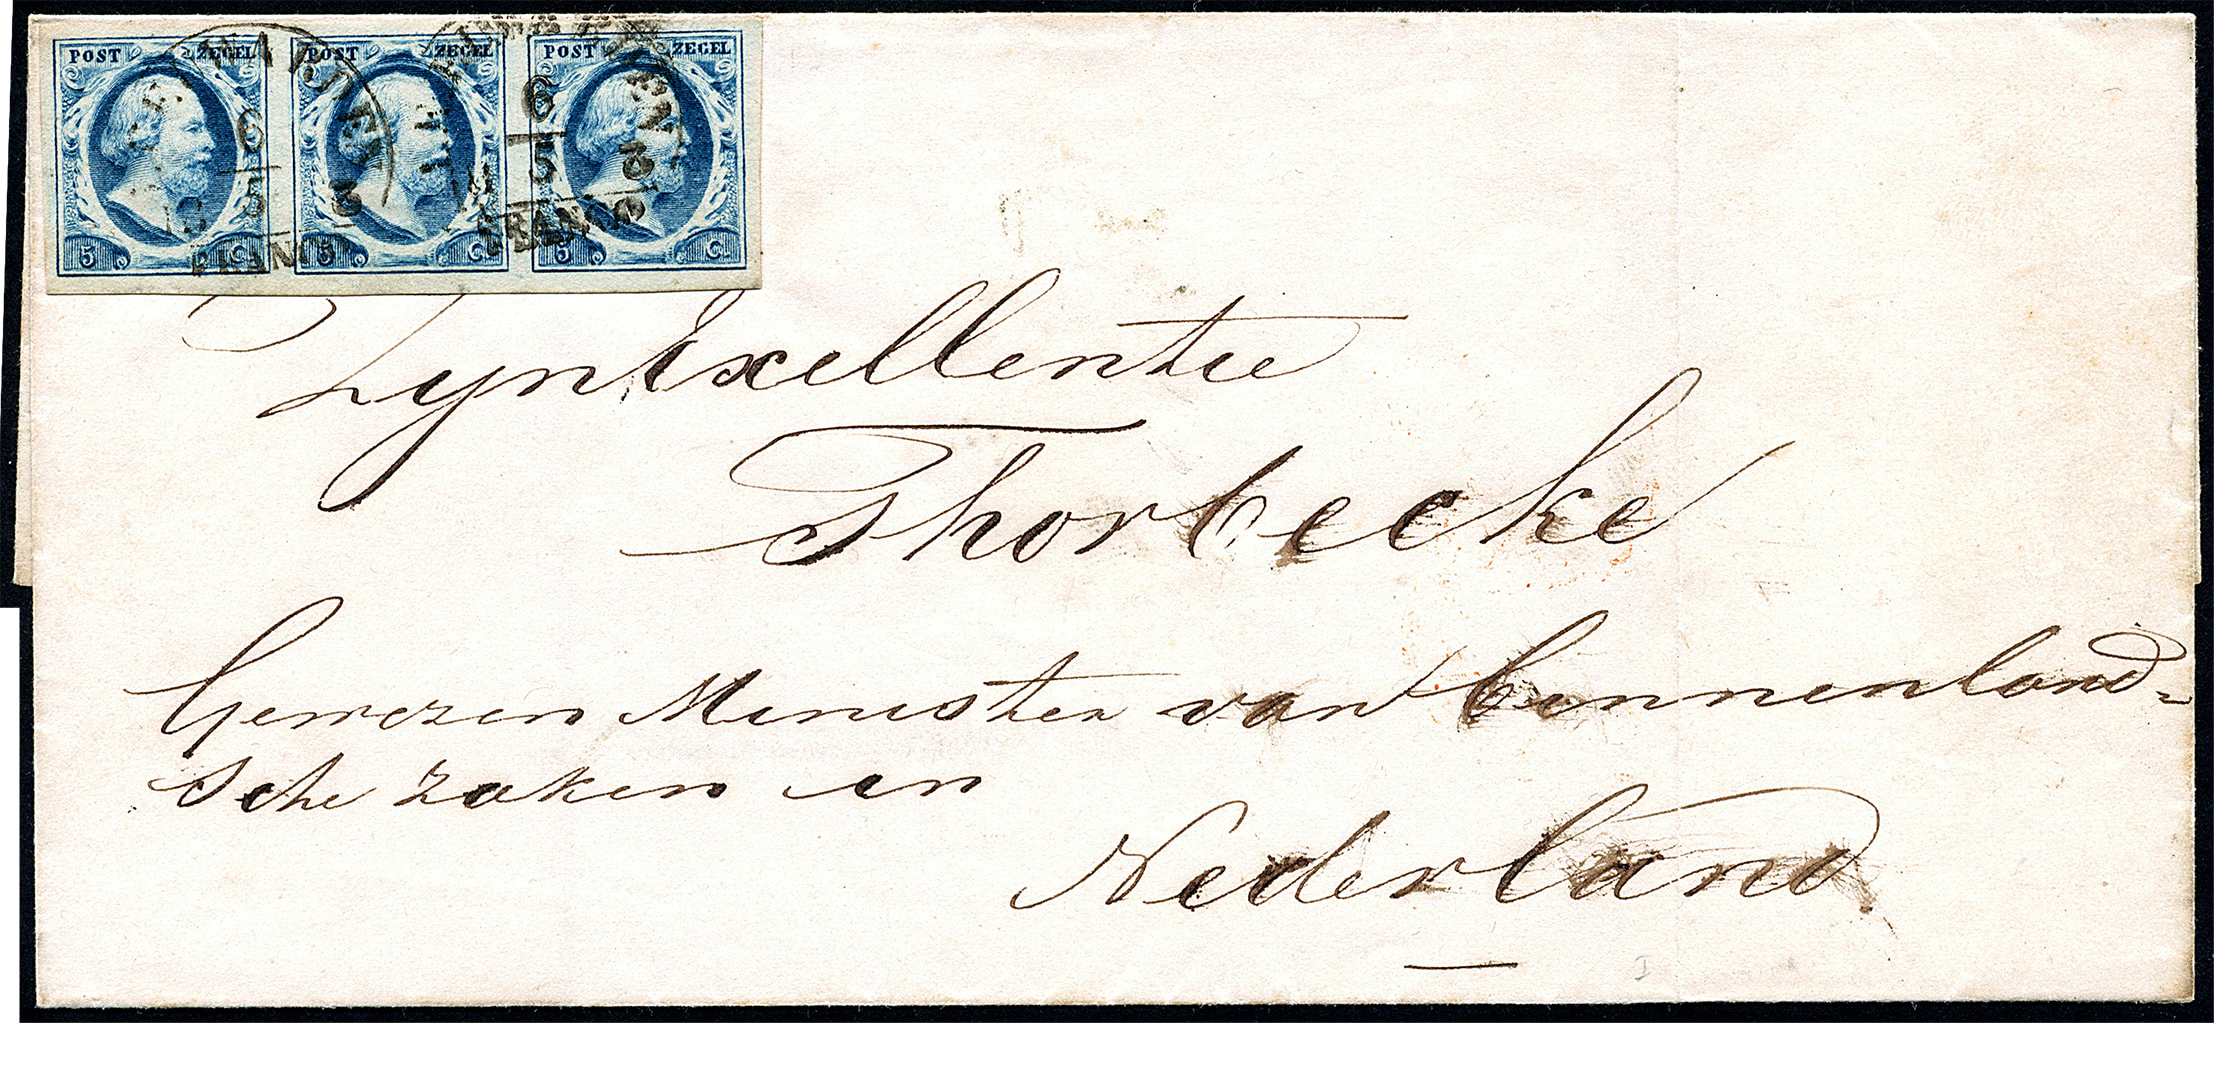 POST ZEGEL POST ZEGEL POST ZEGEL
6 6
5 5
FRANCO FRANCO
5 C. 5 C. 5 C.
Zyn Exellentie
Thorbecke
Gewezen Minister van binnenland=
sche zaken in
Nederland